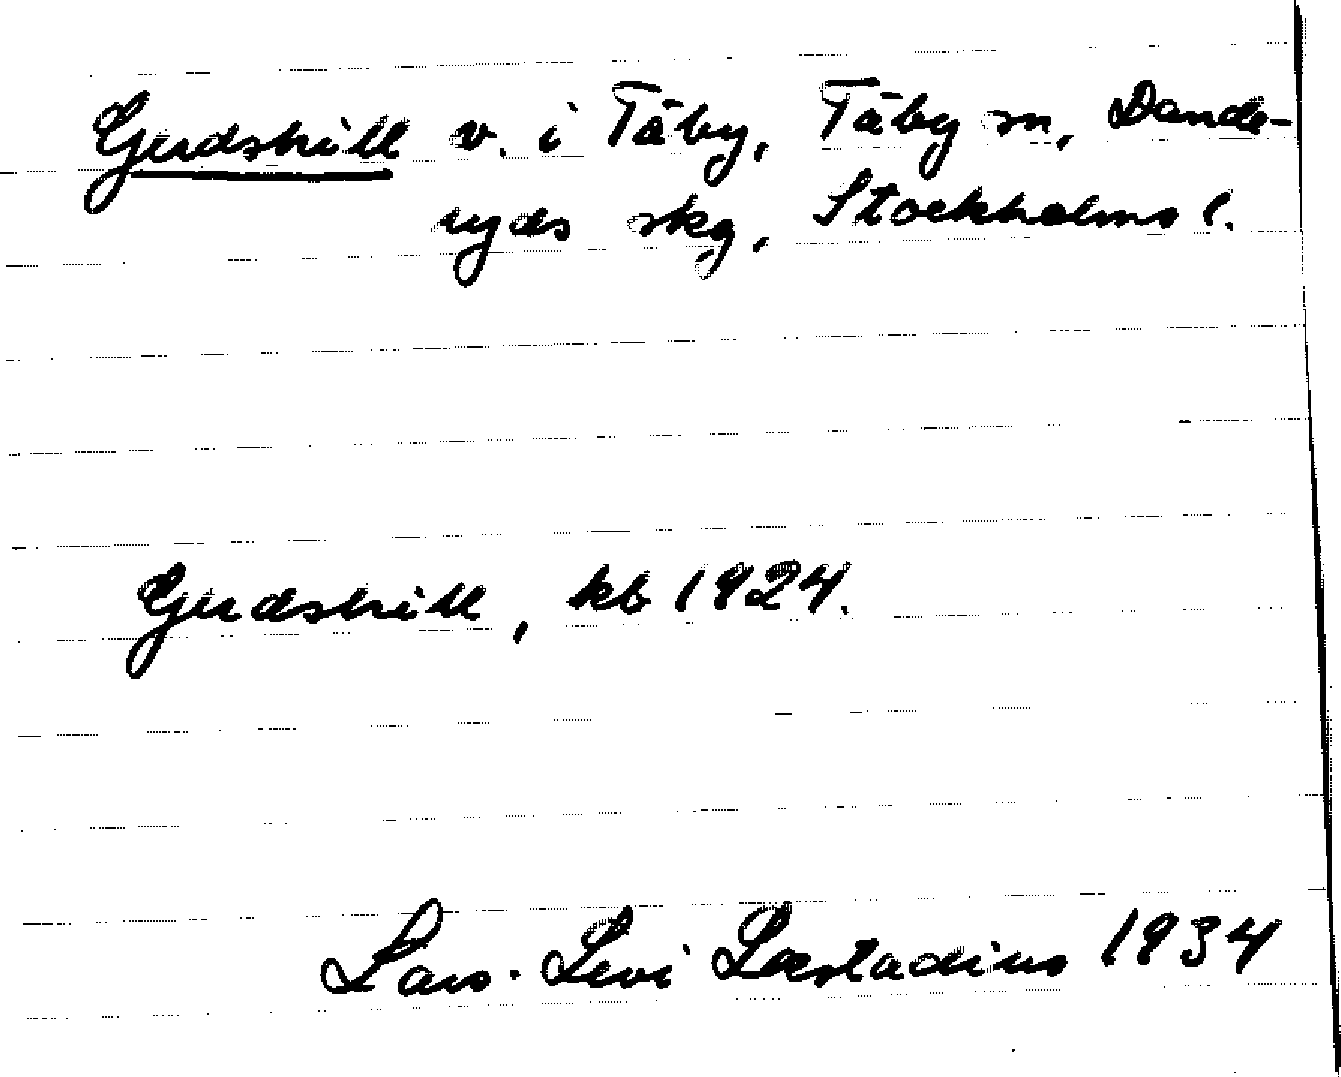 Gerdshill v. i Täby, Täby sn, Dande-
ryds skg, Stockholms l.
Gerdshill, kb 1924.
Lars-Levi Læstadius 1934